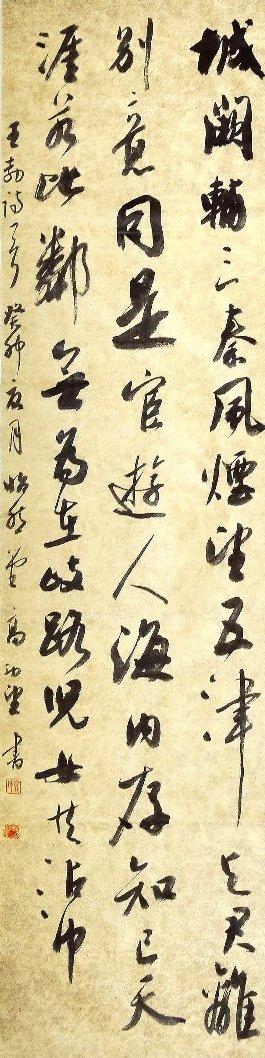 城闕輔三秦風煙望五津与君離
別意同是宦遊人海内存知己天
涯若比鄰無為在岐路兒女共沾巾
王勃詩一首癸卯夏月怡然堂高望書